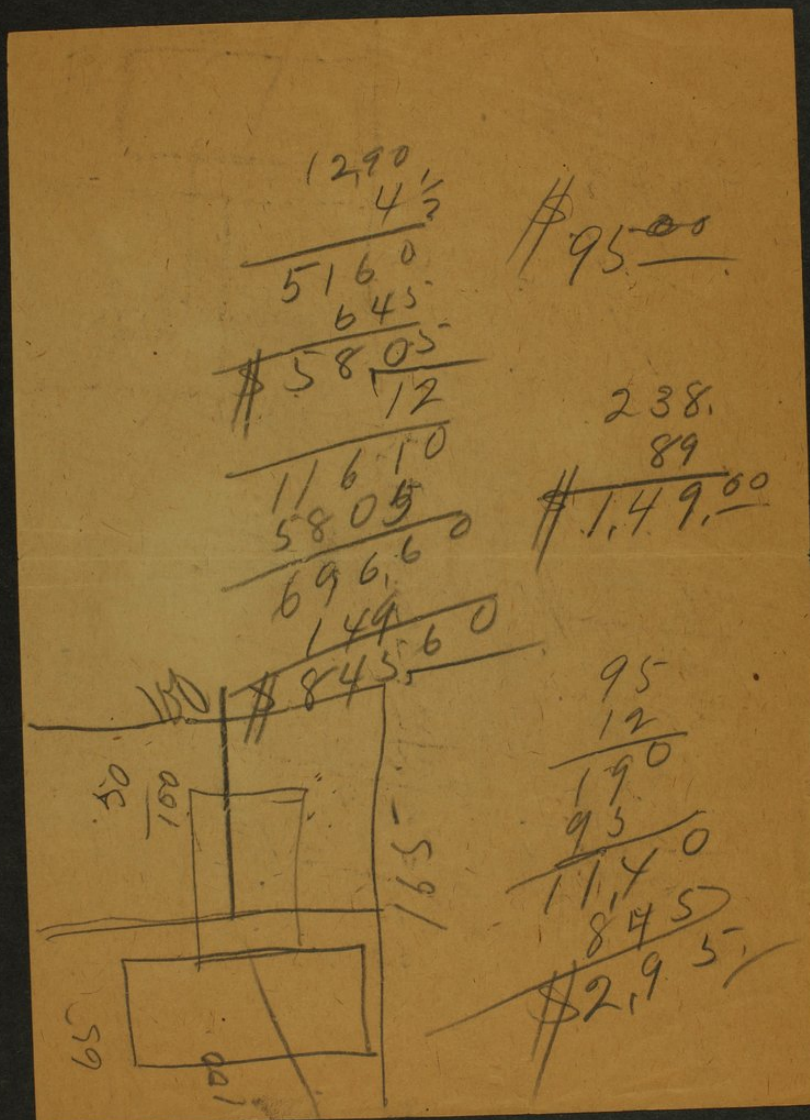 12,90
4 1/2
5160
645
$58,05
12
11610
5805
696,60
149
$845,60
$95.00
238.
89
$1,49,00
95
12
190
95
11,40
845
$2,95,
150
100
50
195
65
100